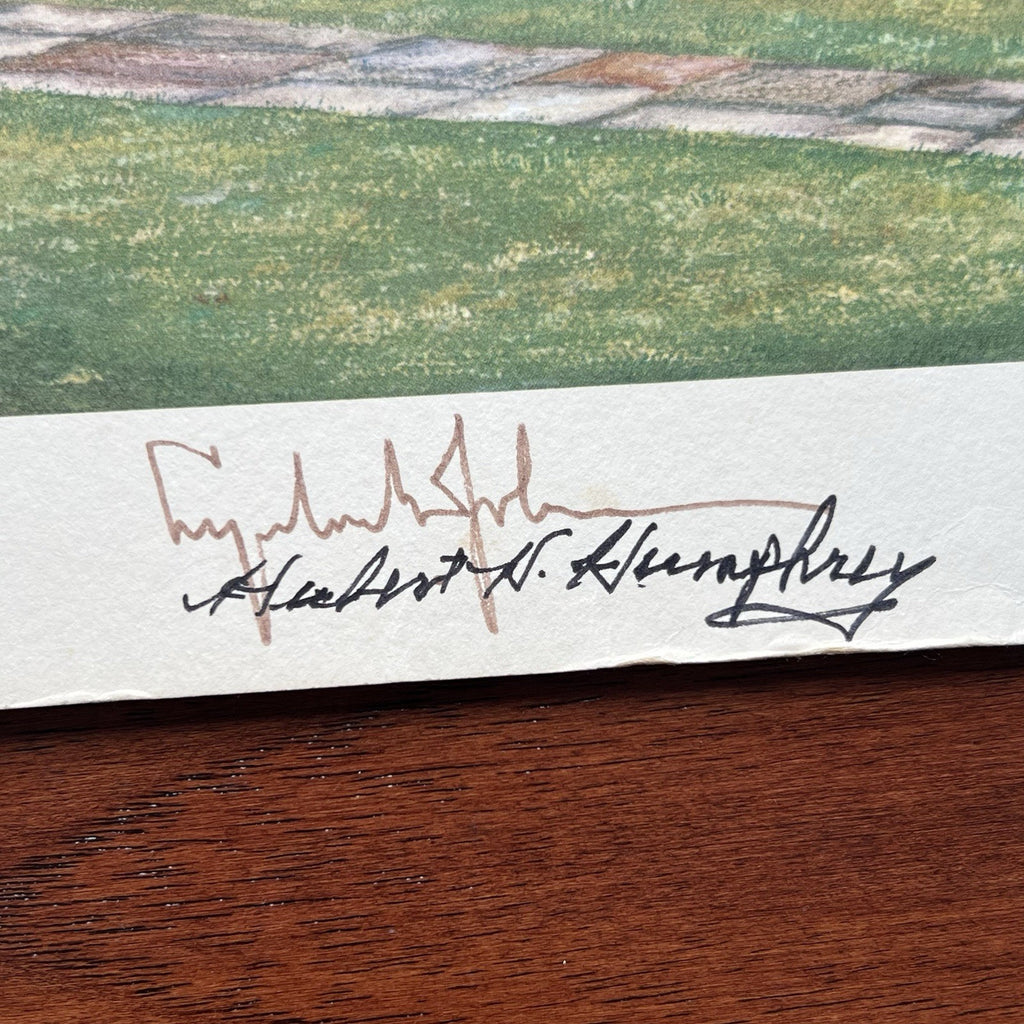 Lyndon B. Johnson
Hubert H. Humphrey